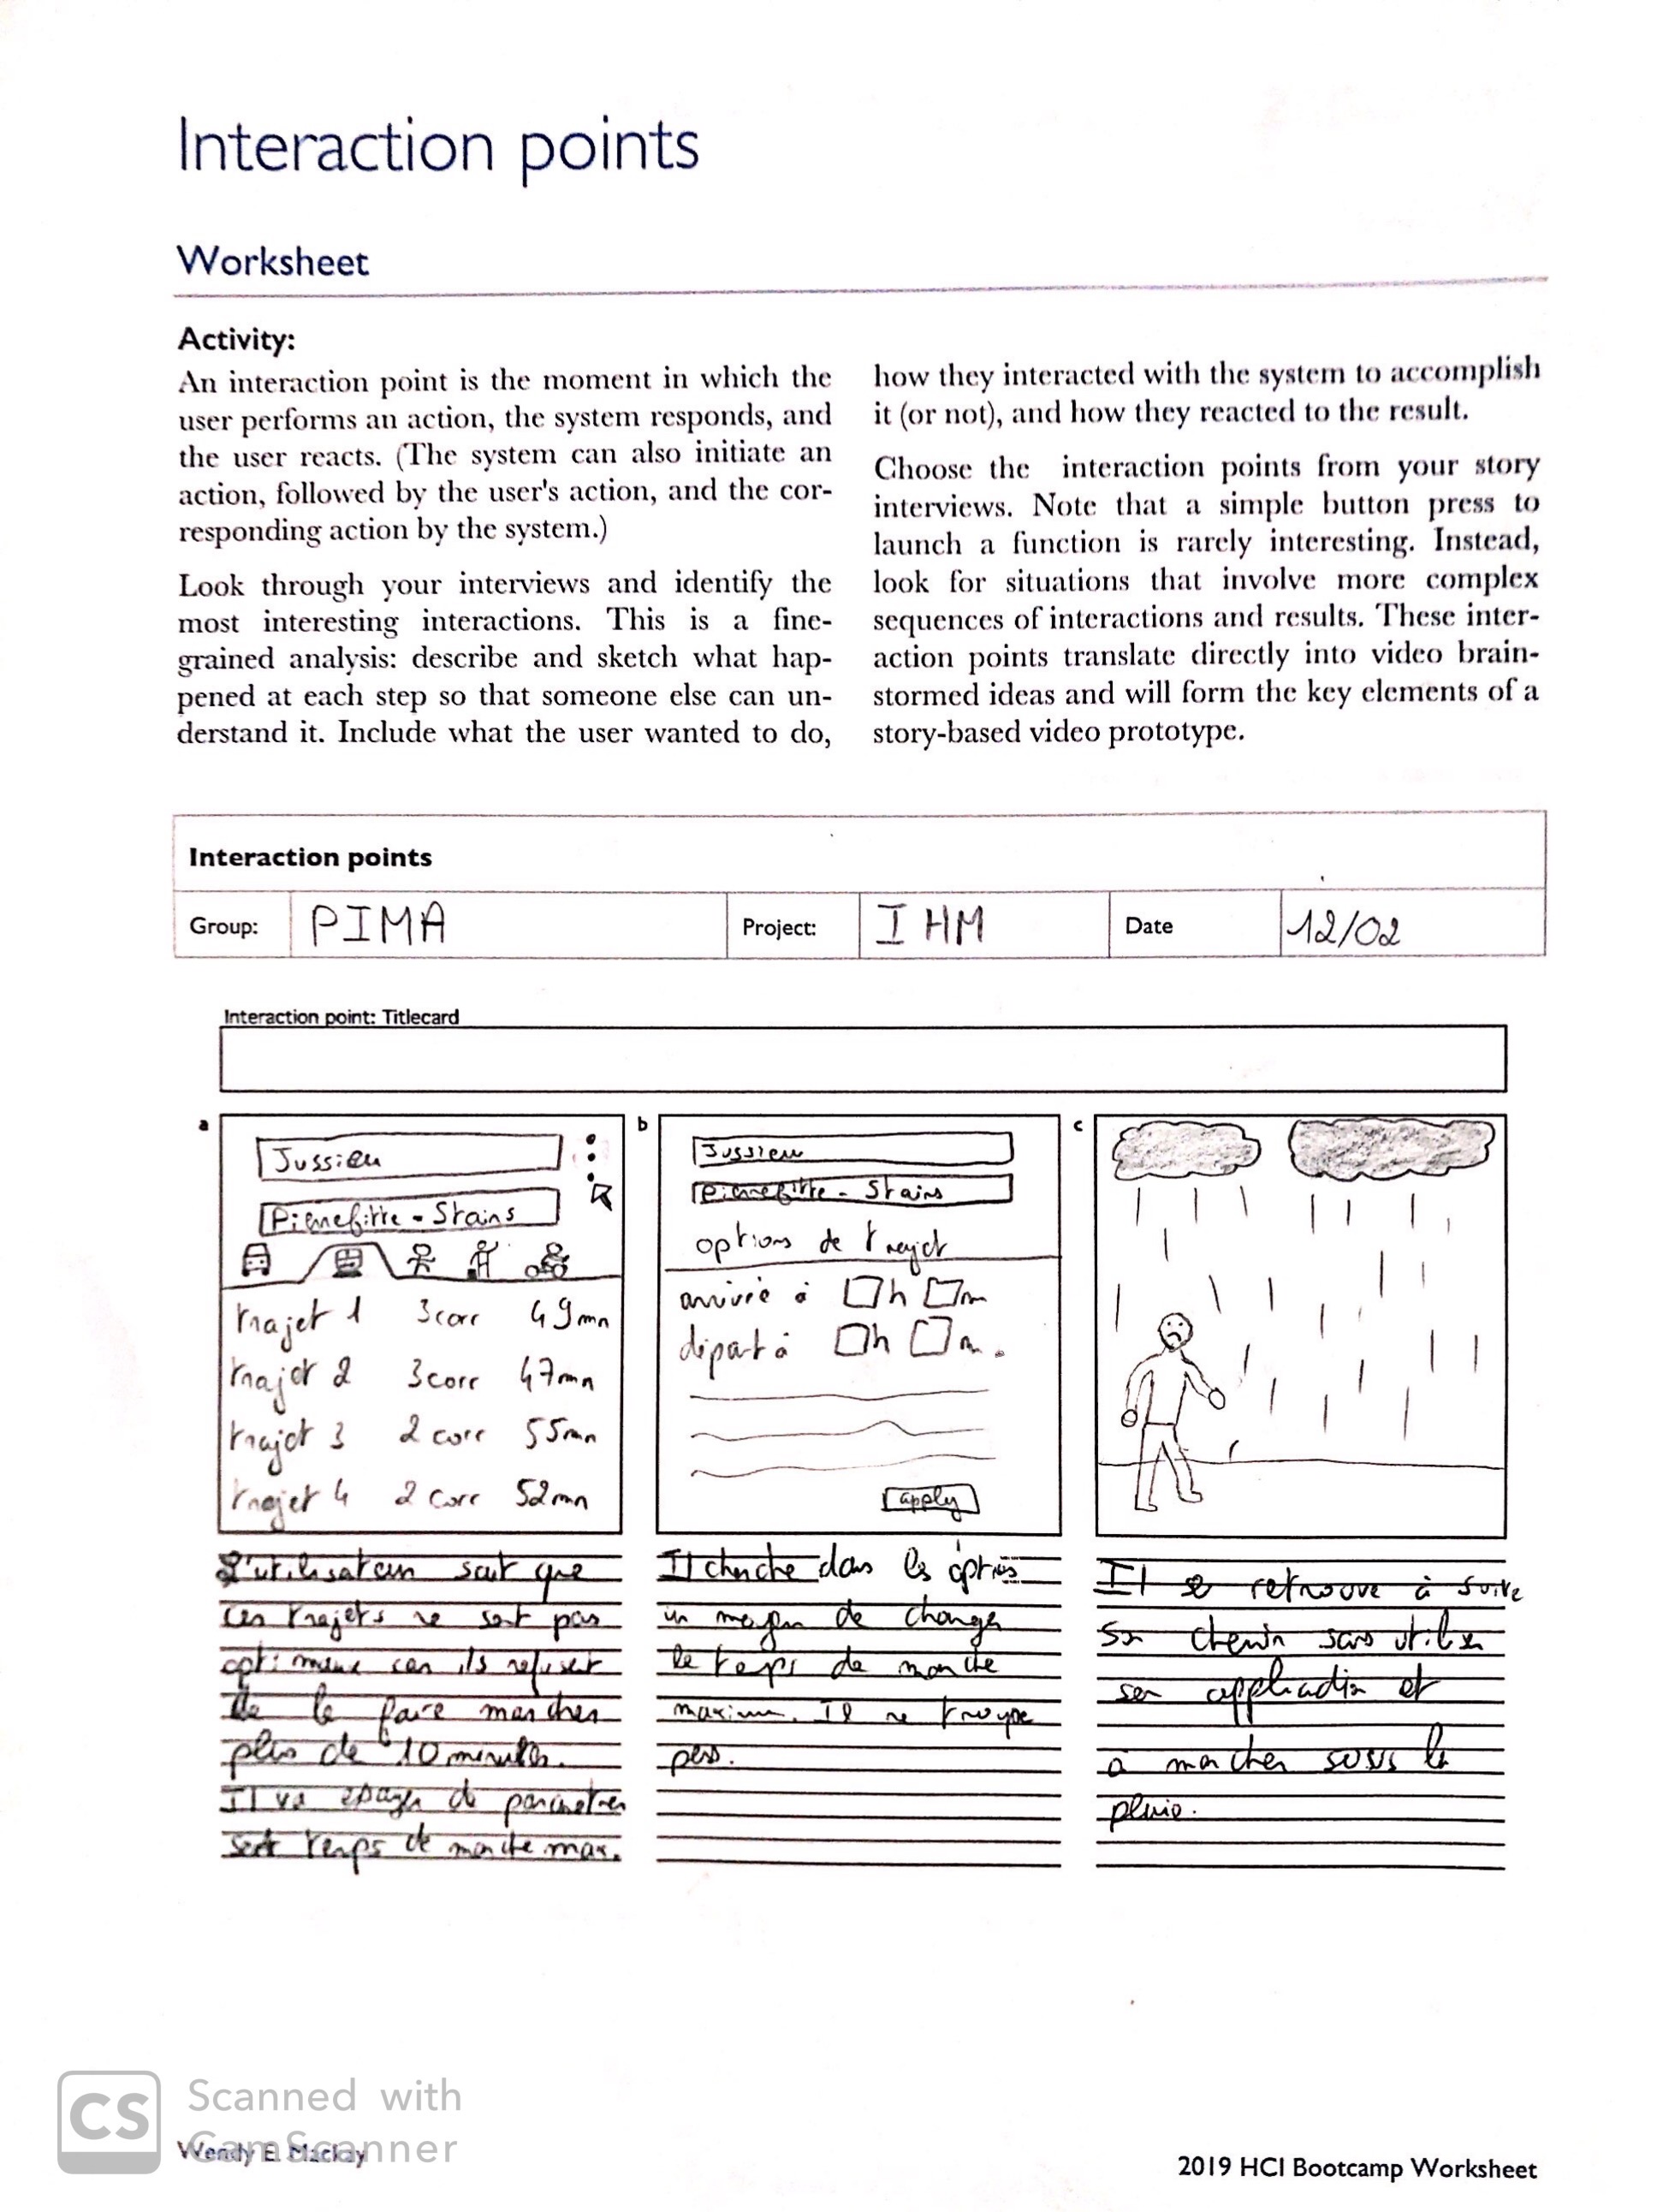 Interaction points
Worksheet
Activity:
An interaction point is the moment in which the
user performs an action, the system responds, and
the user reacts. (The system can also initiate an
action, followed by the user's action, and the cor-
responding action by the system.)
Look through your interviews and identify the
most interesting interactions. This is a fine-
grained analysis: describe and sketch what hap-
pened at each step so that someone else can un-
derstand it. Include what the user wanted to do,
how they interacted with the system to accomplish
it (or not), and how they reacted to the result.
Choose the interaction points from your story
interviews. Note that a simple button press to
launch a function is rarely interesting. Instead,
look for situations that involve more complex
sequences of interactions and results. These inter-
action points translate directly into video brain-
stormed ideas and will form the key elements of a
story-based video prototype.
Interaction points
Group: PIMA Project: IHM Date 12/02
Interaction point: Titlecard
a
Jussieu
Pierrefitte - Stains
trajet 1 3corr 49mn
trajet 2 3corr 47mn
trajet 3 2 corr 55mn
trajet 4 2 corr 52mn
L'utilisateur sait que
ces trajets ne sont pas
optimaux car ils refusent
de le faire marcher
plus de 10 minutes.
Il va essayer de paramétrer
temps de marche max.
b
Jussieu
Pierrefitte - Stains
options de trajet
arrivée à h m
départ à h m
apply
Il cherche dans les options
un moyen de changer
le temps de marche
maximum. Il ne trouve
pas.
c
Il se retrouve à suivre
son chemin sans utiliser
son application et
à marcher sous la
pluie.
CS
Scanned with
CamScanner
Wendy E. Mackay
2019 HCI Bootcamp Worksheet